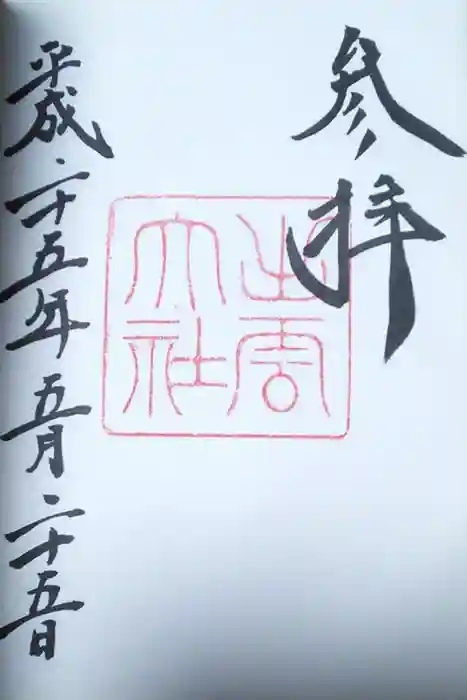 参拝
出雲
大社
平成二十五年五月二十五日